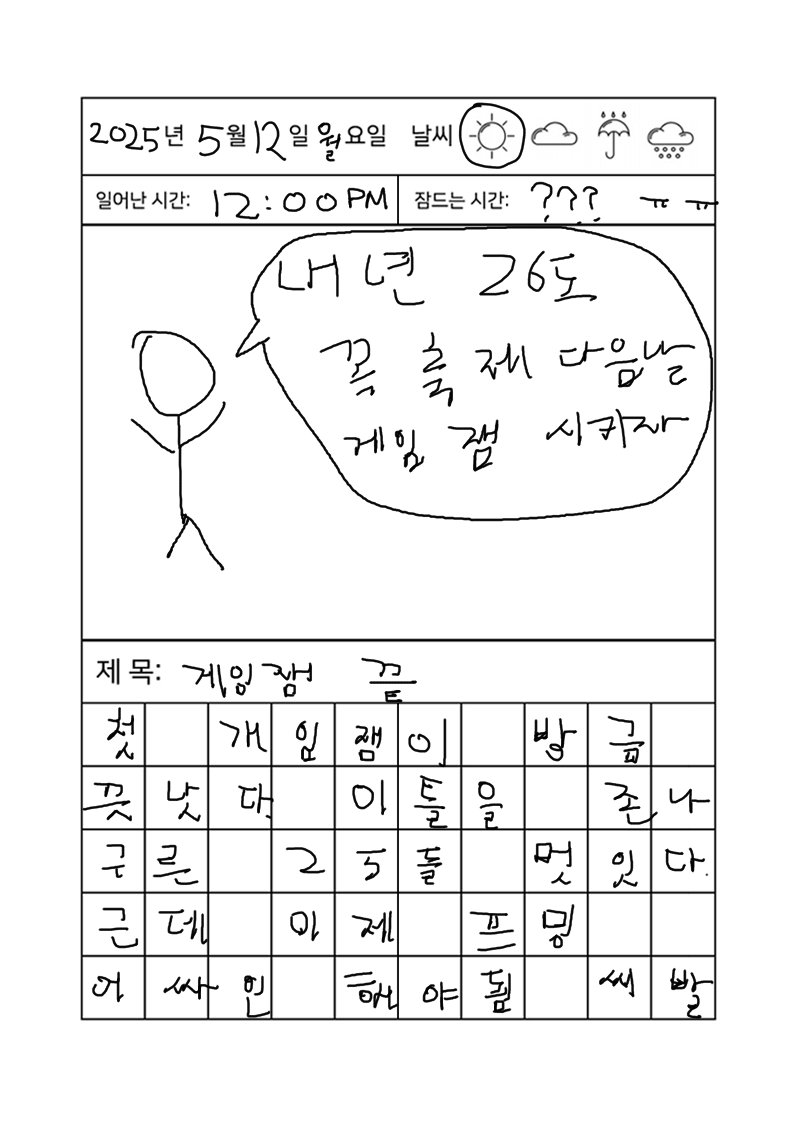 2025년 5월 12일 월요일 날씨
일어난 시간: 12:00PM 잠드는 시간: ??? ㅠㅠ
내년 26도
꼭 축제 다음날
게임잼 시키자
제 목: 게임잼 끝
첫 개임잼이 방금
끗낫다. 이틀을 존나
구른 25들 멋잇다.
근데 이제 프밍
어싸인 해야됨 씨빨